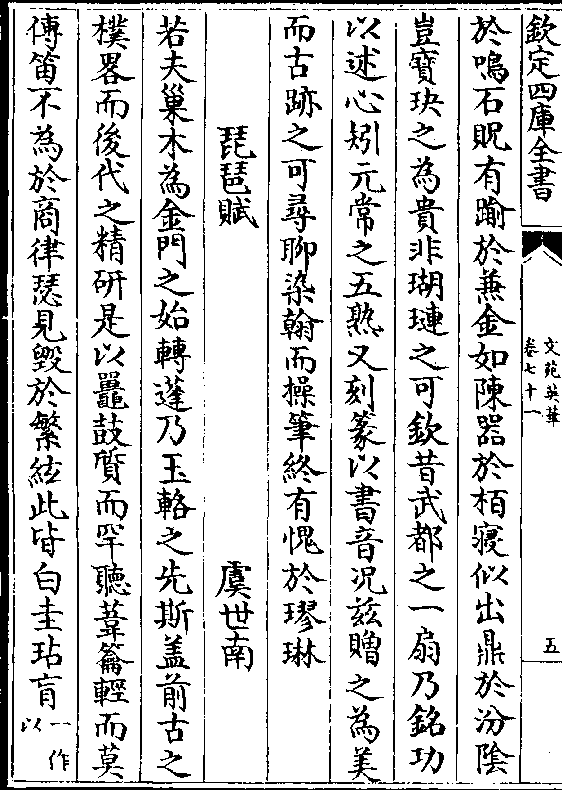 欽定四庫全書
文苑英華
卷七十一
五
於鳴石貺有踰於兼金如陳器於栢寢似出鼎於汾陰
豈寳玦之為貴非瑚璉之可欽昔武都之一扇乃銘功
以述心矧元常之五熟又刻篆以書音况兹贈之為美
而古跡之可尋聊染翰而操筆終有愧於璆琳
琵琶賦　虞世南
若夫巢木為金門之始轉蓬乃玉輅之先斯盖前古之
樸畧而後代之精研是以鼉鼓質而罕聽葦籥輕而莫
傳笛不為於商律瑟見毁於繁絃此皆白圭玷肓一作以